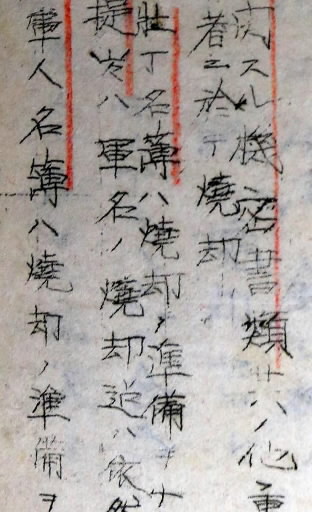 関スル機密書類其ノ他重
者ニ於テ燒却
壮丁名簿ハ燒却ノ準備ヲサ
提出ハ軍名ノ燒却迄ハ依然
軍人名簿ハ燒却ノ準備ヲ